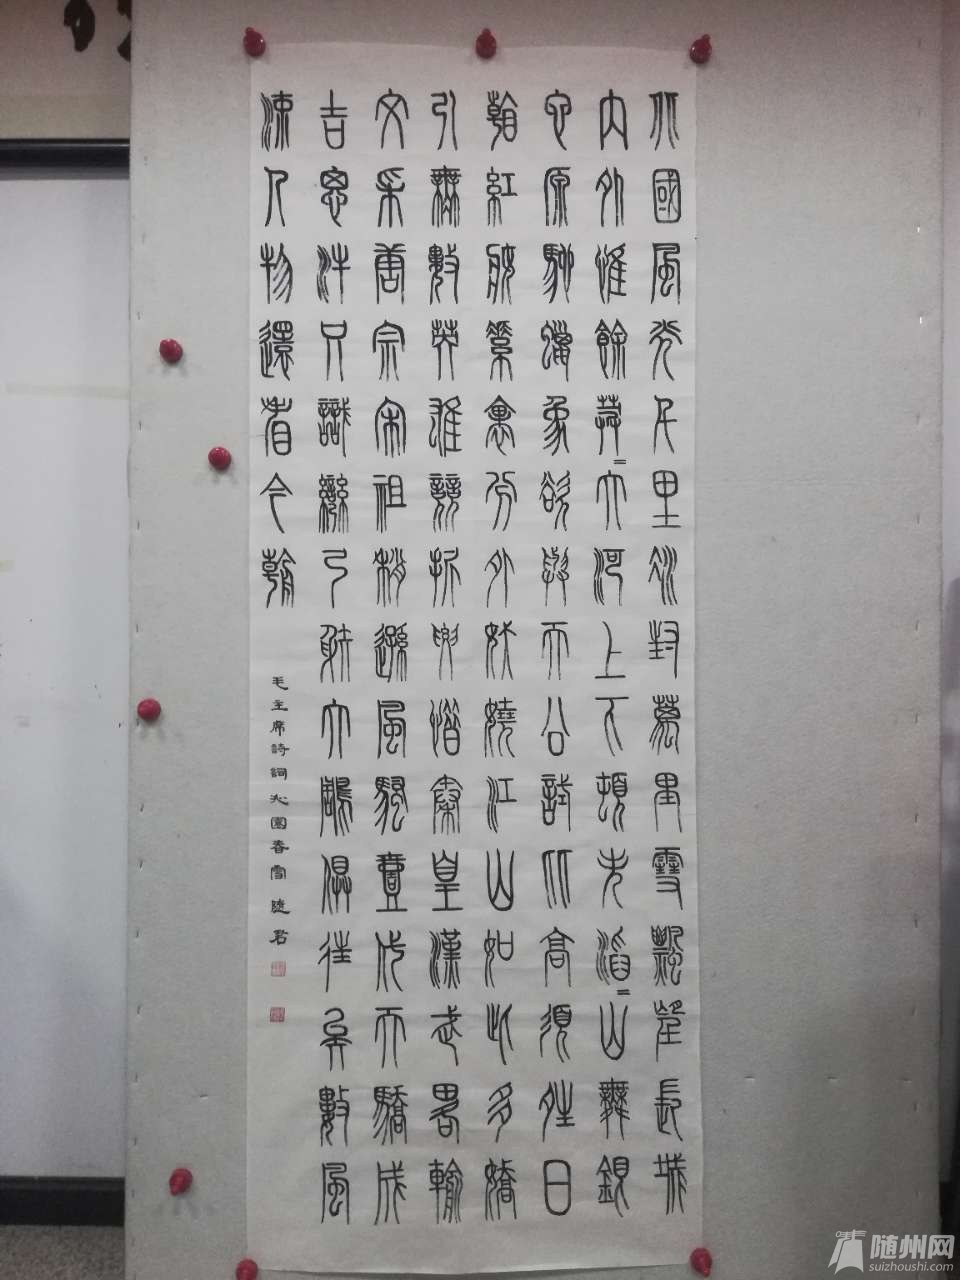 北國風光千里冰封萬里雪飄望長城
內外惟餘莽〻大河上下頓失滔〻山舞銀
蛇原馳蠟象欲與天公試比高須晴日
看紅裝素裹分外妖嬈江山如此多嬌
引無數英雄競折腰惜秦皇漢武畧輸
文采唐宗宋祖稍遜風騷一代天驕成
吉思汗只識彎弓射大鵰俱往矣數風
流人物還看今朝
毛主席詩詞沁園春雪
随州网
suizhoushi.com